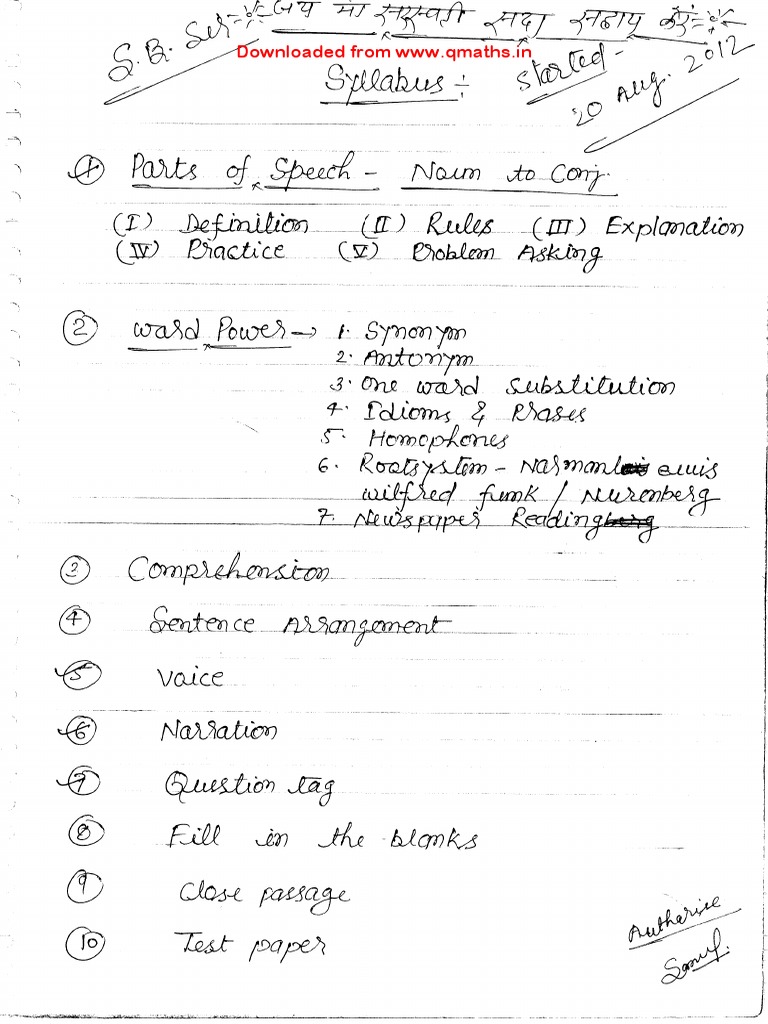 S.B. Ser
जय मां सरस्वती सदा सहाय करें
Downloaded from www.qmaths.in
Syllabus :-
Started -
20 Aug. 2012
1 Parts of Speech - Noun to Conj.
(I) Definition (II) Rules (III) Explanation
(IV) Practice (V) Problem Asking
2 Word Power → 1. Synonym
2. Antonym
3. One word substitution
4. Idioms & Prases
5. Homophones
6. Rootsystem - Narman
wilfred funk / Nurenberg
7. Newspaper Reading
3 Comprehension
4 Sentence Arrangement
5 Voice
6 Narration
7 Question tag
8 Fill in the blanks
9 Close passage
10 Test paper
Autharise